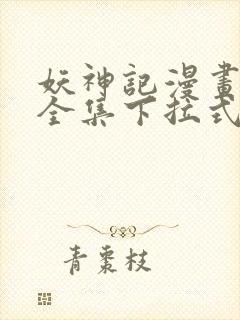 妖神記漫畫
全集下拉式
青棗枝